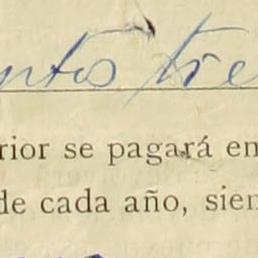 ntos tre
rior se pagará en
de cada año, sien